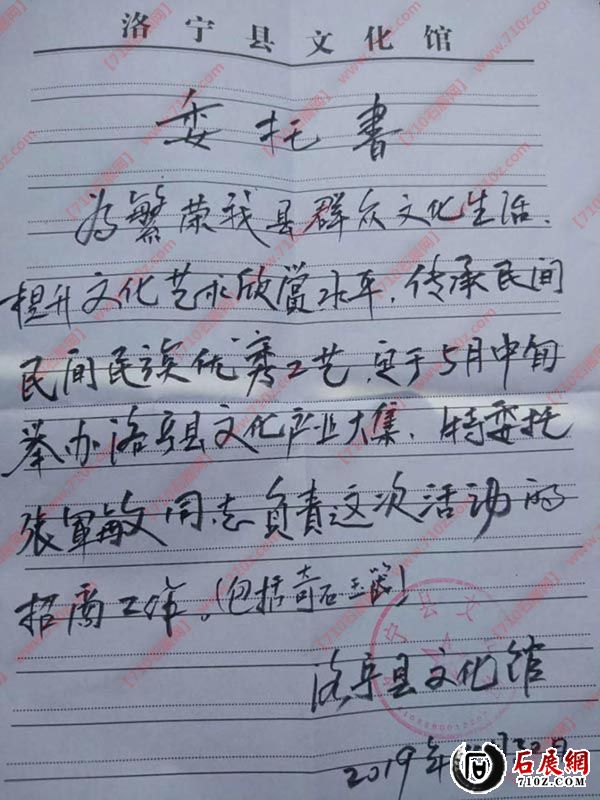 洛宁县文化馆
委托書
为繁荣我县群众文化生活、
提升文化艺术欣赏水平,传承民间
民间民族优秀工艺,定于5月中旬
举办洛宁县文化产业大集,特委托
张軍敏同志负责这次活动的
招商工作。(包括奇石玉器)
洛宁县文化馆
2019年 月20日
石展網
710Z.COM
【710石展网】
www.710z.com